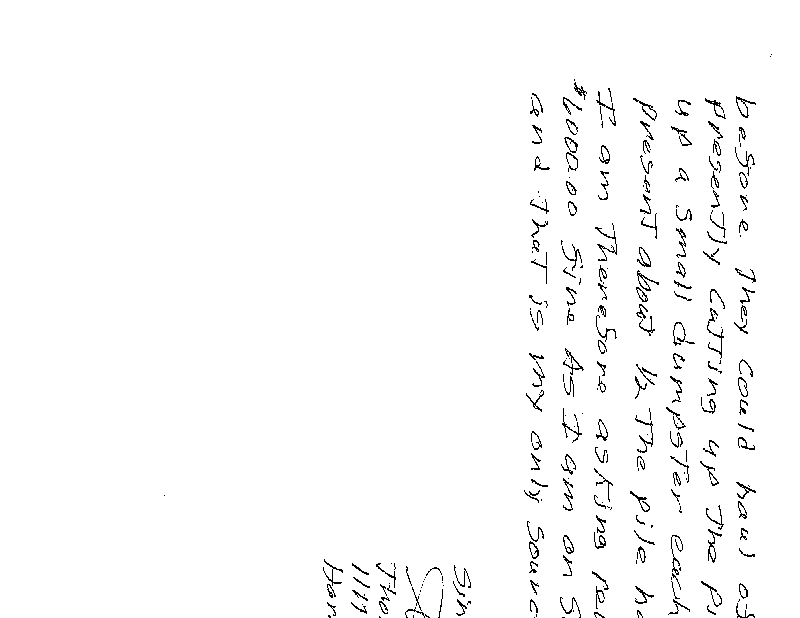 before They could haul of
presently cutting up The pi
up a small dumpster each
present about 1/2 The pile ha
I am Therefore asking rel
$6000.00 fine As I am on S
and That is my only sourc
Sin
Tho
1117
Har